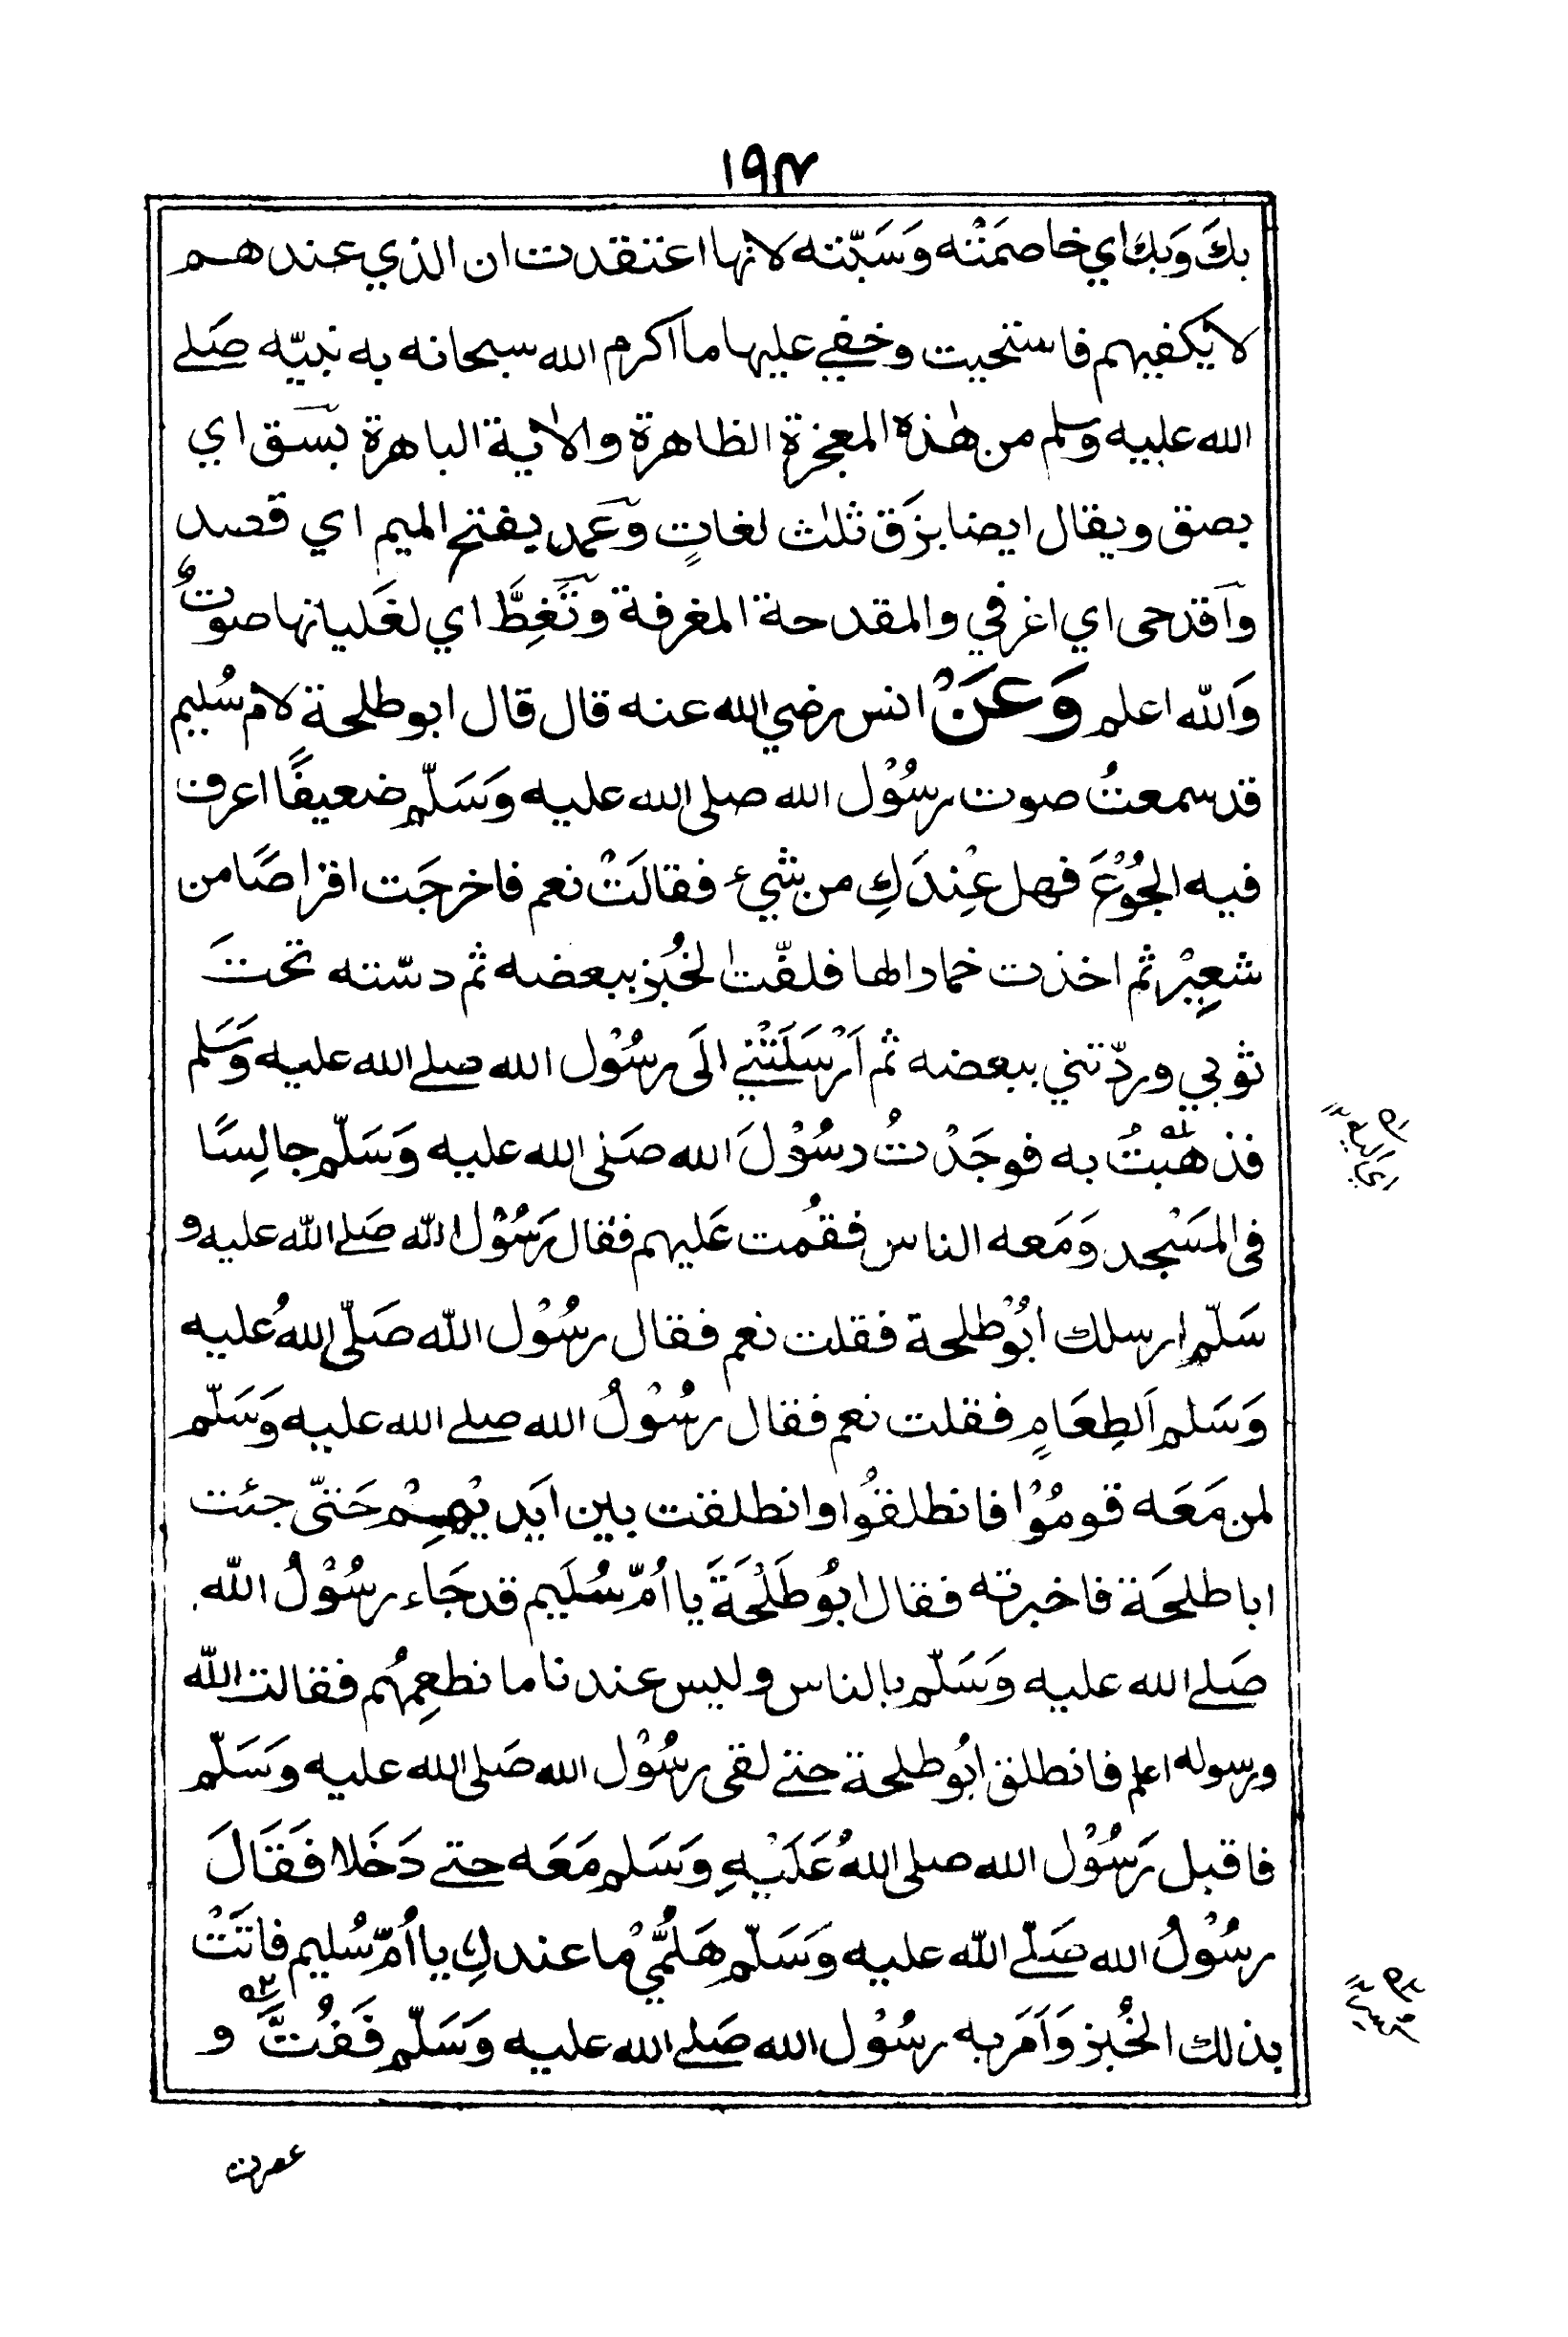 ١٩٧
بكَ وَبِكَ اي خاصمَتْه وَسَبّته لانها اعتقدت ان الذي عندهم
لا يكفيهم فاستحيت وخفي عليها ما اكرم الله سبحانه به نبيّه صَلے
الله عليه وسلم من هٰذه المعجزة الظاهرة والاٰية الباهرة بسَق اي
بصق ويقال ايضا بزَق ثلٰث لغاتٍ وعَمد بفتح الميم اي قصد
واقدحى اي اغرفي والمقدحة المغرفة وتَغِطَّ اي لغَليانها صوتٌ
وَاللّه اعلم وَعَنْ انس رضي الله عنه قال قال ابو طلحة لام سُليم
قد سمعتُ صوت رسُوْل الله صلى الله عليه وَسَلّم ضعيفًا اعرف
فيه الجُوْعَ فهل عِنْدَكِ من شيء فقالَتْ نعم فاخرجَت اقراصًا من
شعِيْر ثم اخذت خمارا لها فلفّت الخُبز ببعضه ثم دسّته تحتَ
ثوبي وردّتني ببعضه ثم اَرْسَلَتْنِے الَى رسُوْل الله صلے الله عليه وَسَلم
فذهَبْتُ به فوجَدْتُ رسُوْلَ الله صَلى الله عليه وَسَلّم جالِسًا
فى المسْجد وَمَعه الناس فقُمت عَليهم فقال رَسُوْل اللّه صَلے اللّه عليه و
سَلّم ارسلك ابُوْ طلحة فقلت نعم فقال رسُوْل اللّه صَلّى اللهُ عليه
وَسَلم اَلطِعَامٍ فقلت نعم فقال رسُوْلُ الله صلے الله عليه وَسَلّم
لمن مَعَه قومُوْا فانطلقوُا وانطلقت بين ايَدِيْهِمْ حَتّى جئت
ابا طلحَة فاخبرته فقال ابُو طَلْحَةَ يا اُمّ سُلَيم قد جَاء رسُوْلُ اللّه
صَلے الله عليه وَسَلّم بالناس وليس عندنا ما نطعِمهُم فقالت اللّه
ورسوله اعلم فانطلق ابُو طلحة حتے لقى رسُوْل الله صَلى الله عليه وَسَلّم
فاقبل رَسُوْل الله صلى اللهُ عَلَيْهِ وَسَلم مَعَه حتے دَخَلا فَقَالَ
رسُوْلُ الله صَلّے اللّه عليه وَسَلّم هَلُمّيْ ما عندكِ يا اُمّ سُليم فاتَتْ
بذلك الخُبز وَاَمَر به رسُوْل الله صَلے الله عليه وَسَلّم فَفُتَّ و
عصرت